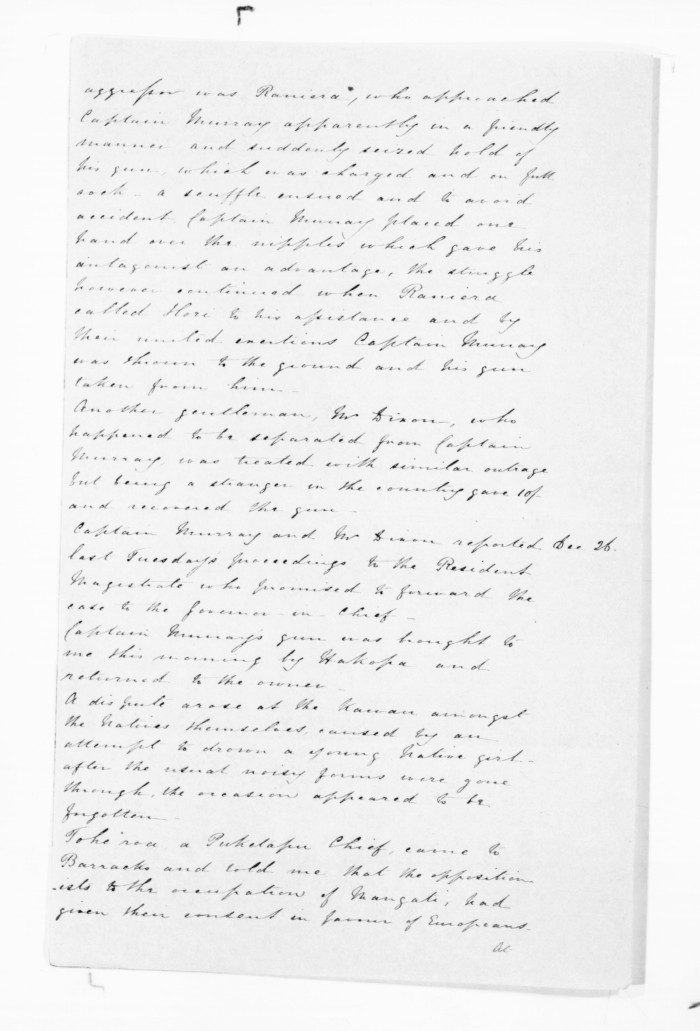 aggressor was Raniera, who approached
Captain Murray apparently in a friendly
manner and suddenly seized hold of
his gun, which was charged and on full
cock - a scuffle ensued and to avoid
accident Captain Murray placed one
hand over the nipples which gave his
antagonist an advantage, the struggle
however continued when Raniera
called Hori to his assistance and by
their united exertions Captain Murray
was thrown to the ground and his gun
taken from him -
Another gentleman, Mr Dixon, who
happened to be separated from Captain
Murray, was treated with similar outrage
but being a stranger in the country gave 10/-
and recovered the gun -
Captain Murray and Mr Dixon reported Dec 26.
last Tuesday's proceedings to the Resident
Magistrate who promised to forward the
case to the Governor-in-Chief -
Captain Murray's gun was bought to
me this morning by Hakopa and
returned to the owner -
A dispute arose at the Kawau amongst
the Natives themselves, caused by an
attempt to drown a young Native girl -
after the usual noisy forms were gone
through, the occasion appeared to be
forgotten -
Tohe'roa, a Puketapu Chief, came to
Barracks and told me that the opposition
ists to the occupation of Mangati, had
given their consent in favour of Europeans -